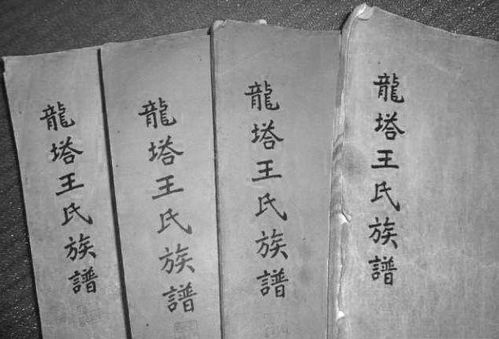 龍塔王氏族譜
龍塔王氏族譜
龍塔王氏族譜
龍塔王氏族譜